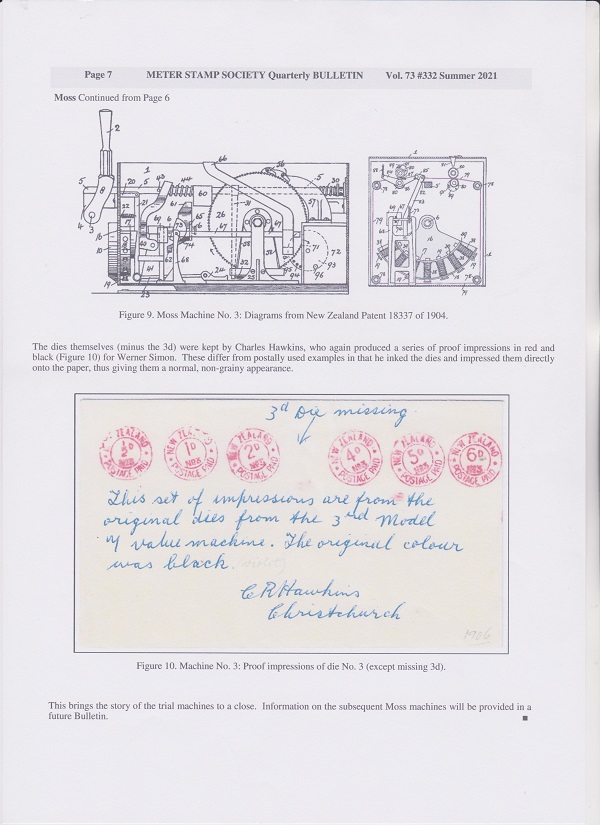 Page 7 METER STAMP SOCIETY Quarterly BULLETIN Vol. 73 #332 Summer 2021
Moss Continued from Page 6
Figure 9. Moss Machine No. 3: Diagrams from New Zealand Patent 18337 of 1904.
The dies themselves (minus the 3d) were kept by Charles Hawkins, who again produced a series of proof impressions in red and
black (Figure 10) for Werner Simon. These differ from postally used examples in that he inked the dies and impressed them directly
onto the paper, thus giving them a normal, non-grainy appearance.
3d Die missing
NEW ZEALAND ½D No3 POSTAGE PAID
NEW ZEALAND 1D No3 POSTAGE PAID
NEW ZEALAND 2D No3 POSTAGE PAID
NEW ZEALAND 4D No3 POSTAGE PAID
NEW ZEALAND 5D No3 POSTAGE PAID
NEW ZEALAND 6D No3 POSTAGE PAID
This set of impressions are from the
original dies from the 3rd Model
of value machine. The original colour
was black. (violet)
C R Hawkins
Christchurch
1906
Figure 10. Machine No. 3: Proof impressions of die No. 3 (except missing 3d).
This brings the story of the trial machines to a close. Information on the subsequent Moss machines will be provided in a
future Bulletin.